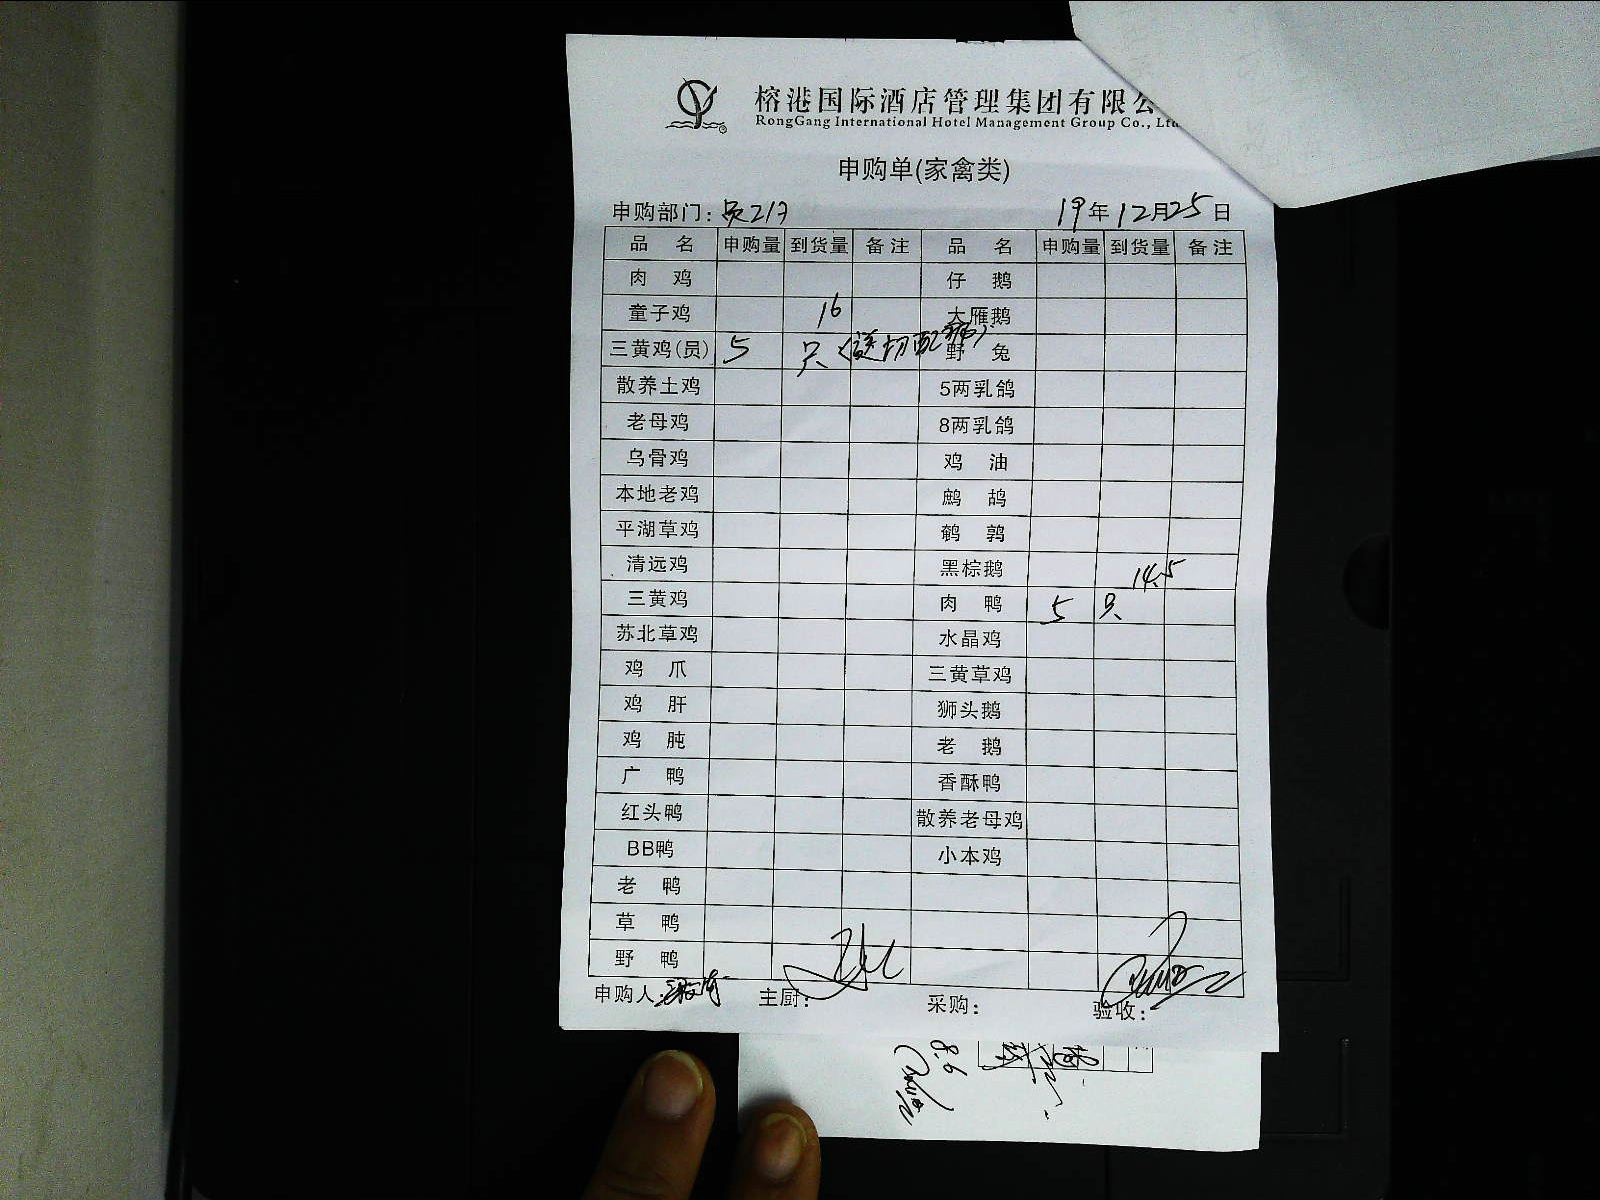 榕港国际酒店管理集团有限公
RongGang International Hotel Management Group Co., Ltd
申购单(家禽类)
申购部门: 19年12月25日
品 名 申购量 到货量 备注 品 名 申购量 到货量 备注
肉 鸡 仔 鹅
童子鸡 16 大雁鹅
三黄鸡(员) 5 只(送切配 野 兔
散养土鸡 5两乳鸽
老母鸡 8两乳鸽
乌骨鸡 鸡 油
本地老鸡 鹧 鸪
平湖草鸡 鹌 鹑
清远鸡 黑棕鹅 14.5
三黄鸡 肉 鸭 5 只
苏北草鸡 水晶鸡
鸡 爪 三黄草鸡
鸡 肝 狮头鹅
鸡 肫 老 鹅
广 鸭 香酥鸭
红头鸭 散养老母鸡
BB鸭 小本鸡
老 鸭
草 鸭
野 鸭
申购人: 主厨: 采购: 验收:
8.6